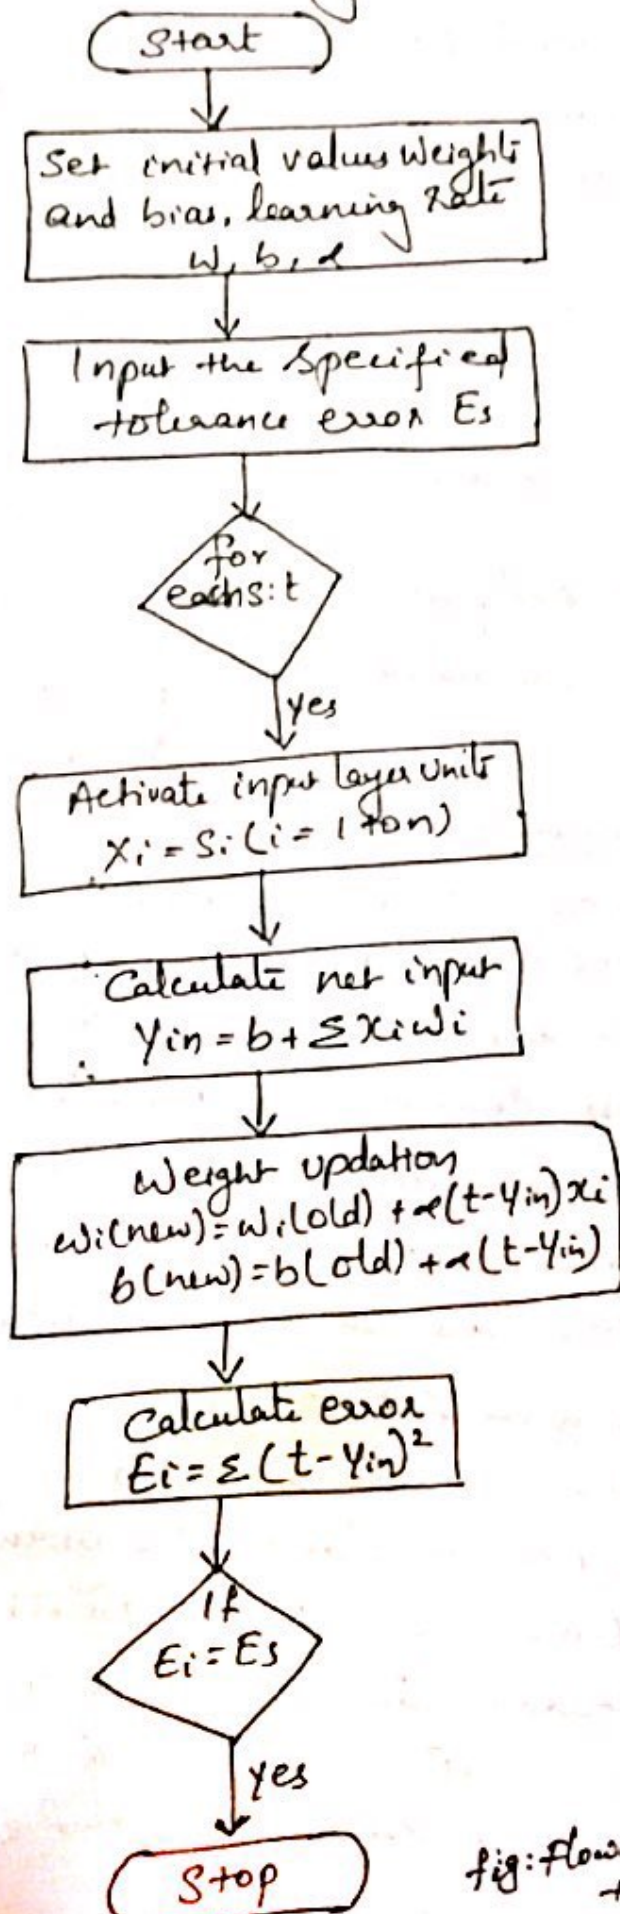 Start
Set initial values weights
and bias, learning rate
w, b, α
Input the specified
tolerance error Es
for
each s:t
yes
Activate input layer units
Xi = Si (i = 1 to n)
Calculate net input
Yin = b + Σ xi wi
Weight updation
wi(new) = wi(old) + α(t-yin)xi
b(new) = b(old) + α(t-yin)
Calculate error
Ei = Σ (t-yin)²
If
Ei = Es
yes
Stop
fig: Flow